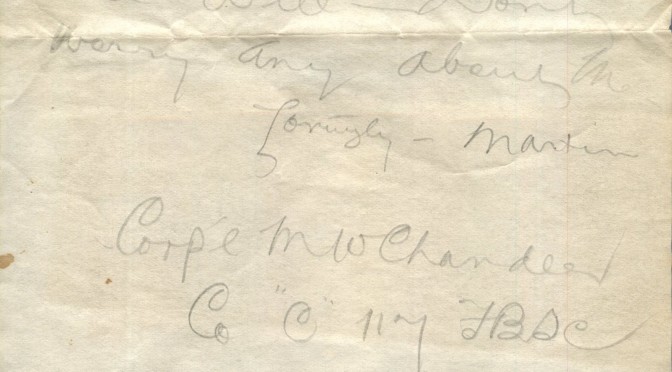 will - Dont
worry any about M
Lovingly - Martin
Corp'l M W Chandler
Co "C" 117 F B S C